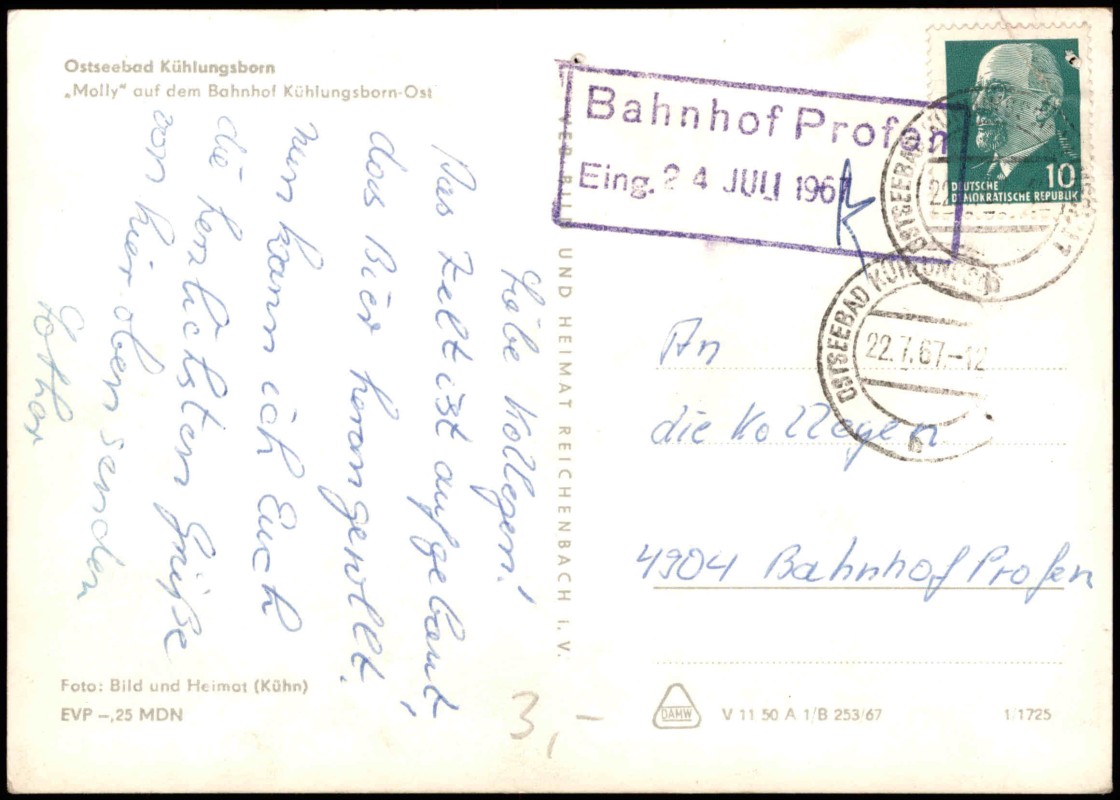 Ostseebad Kühlungsborn
„Molly" auf dem Bahnhof Kühlungsborn-Ost
Liebe Kollegen!
Das Zelt ist aufgebaut,
das Bier herangerollt.
Nun kann ich Euch
die herzlichsten Grüße
von hier oben senden
Lothar
Foto: Bild und Heimat (Kühn)
EVP –,25 MDN
3,–
VEB BILD UND HEIMAT REICHENBACH i. V.
Bahnhof Profen
Eing. 24 JULI 1967
DEUTSCHE
DEMOKRATISCHE REPUBLIK
10
OSTSEEBAD KÜHLUNGSBORN
22.7.67.-12
a
An
die Kollegen
4904 Bahnhof Profen
DAMW
V 11 50 A 1/B 253/67
1/1725